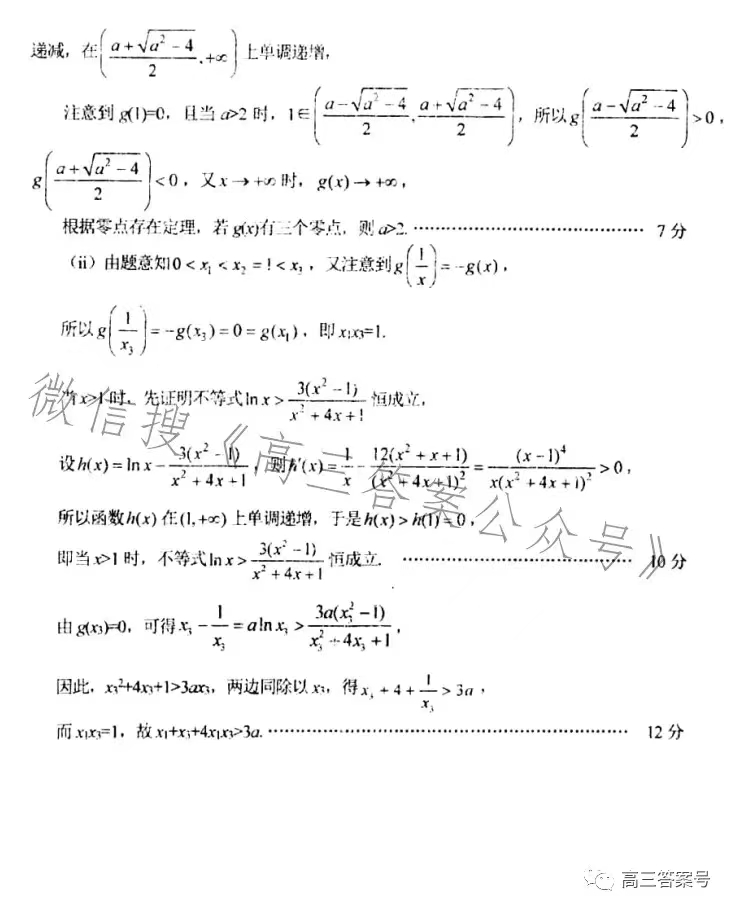 递减，在((a+√(a²-4))/2,+∞)上单调递增，
注意到 g(1)=0，且当 a>2 时，1∈((a-√(a²-4))/2,(a+√(a²-4))/2)，所以g((a-√(a²-4))/2)>0，
g((a+√(a²-4))/2)<0，又x→+∞时，g(x)→+∞，
根据零点存在定理，若 g(x)有三个零点，则 a>2. ………………………………… 7 分
（ii）由题意知0<x₁<x₂=1<x₃，又注意到g(1/x)=-g(x)，
所以g(1/x₃)=-g(x₃)=0=g(x₁)，即 x₁x₃=1.
当 x>1 时，先证明不等式ln x>3(x²-1)/(x²+4x+1)恒成立，
设h(x)=ln x-3(x²-1)/(x²+4x+1)，则h′(x)=1/x-12(x²+x+1)/(x²+4x+1)²=(x-1)⁴/(x(x²+4x+1)²)>0，
所以函数h(x)在(1,+∞)上单调递增，于是h(x)>h(1)=0，
即当 x>1 时，不等式ln x>3(x²-1)/(x²+4x+1)恒成立. ………………………………… 10 分
由 g(x₃)=0，可得x₃-1/x₃=aln x₃>3a(x₃²-1)/(x₃²+4x₃+1)，
因此，x₃²+4x₃+1>3ax₃，两边同除以 x₃，得x₃+4+1/x₃>3a，
而 x₁x₃=1，故 x₁+x₃+4x₁x₃>3a. ………………………………………………… 12 分
微信搜《高三答案公众号》
高三答案号